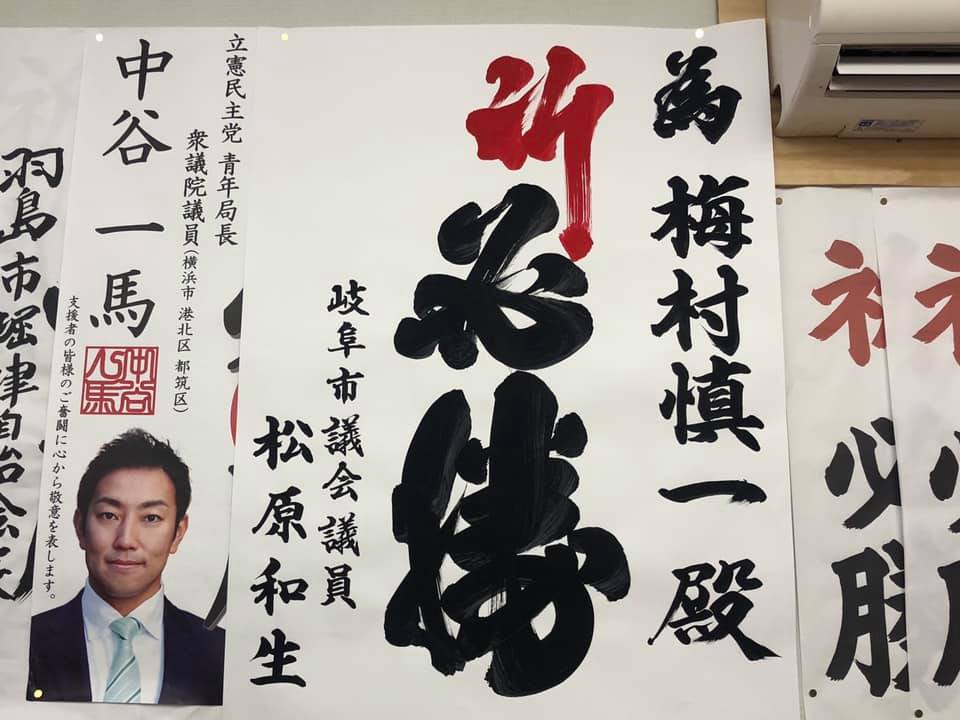 為 梅村慎一 殿
祈
必勝
岐阜市議会議員
松原和生
立憲民主党 青年局長
衆議院議員(横浜市 港北区 都筑区)
中谷一馬
中谷
一馬
支援者の皆様のご奮闘に心から敬意を表します。
羽島市堀津自治会長
必勝